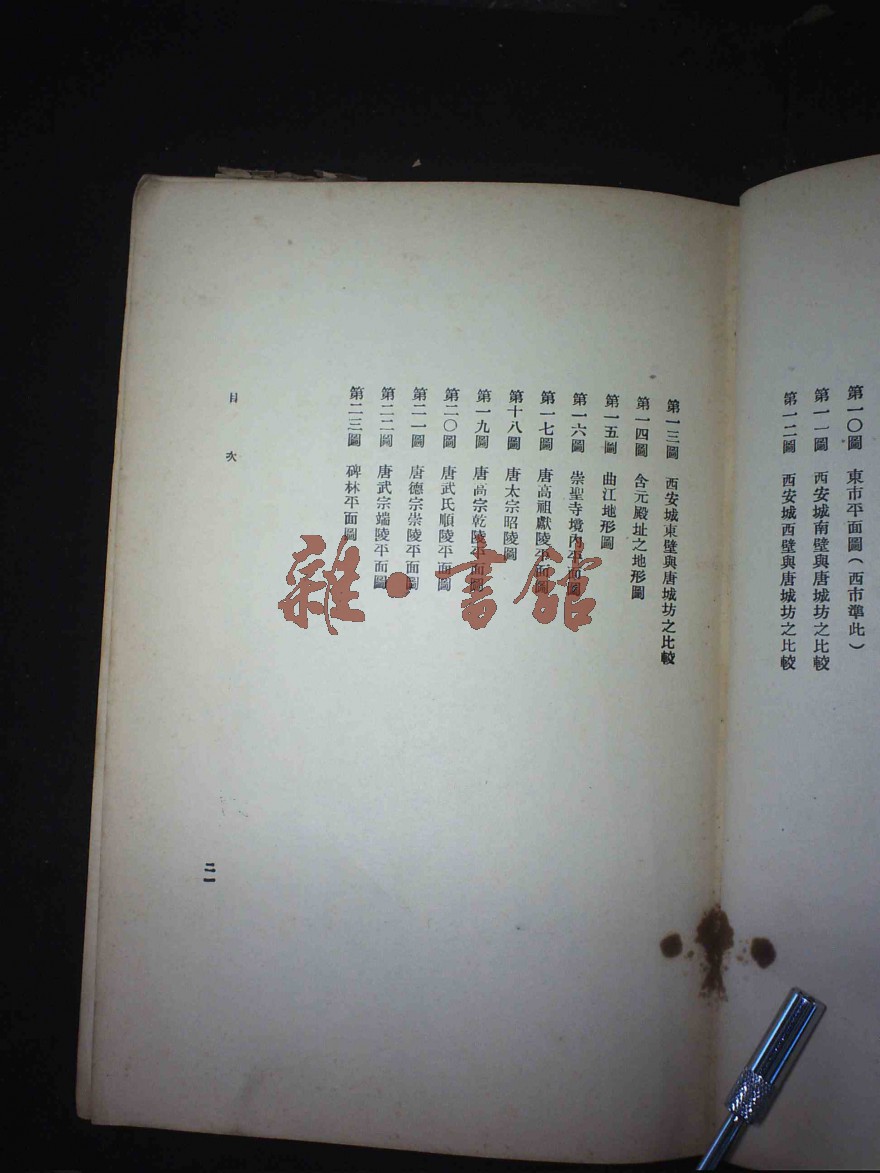 第一〇圖 東市平面圖(西市準此)
第一一圖 西安城南壁與唐城坊之比較
第一二圖 西安城西壁與唐城坊之比較
第一三圖 西安城東壁與唐城坊之比較
第一四圖 含元殿址之地形圖
第一五圖 曲江地形圖
第一六圖 崇聖寺境內平面圖
第一七圖 唐高祖獻陵平面圖
第十八圖 唐太宗昭陵圖
第一九圖 唐高宗乾陵平面圖
第二〇圖 唐武氏順陵平面圖
第二一圖 唐德宗崇陵平面圖
第二二圖 唐武宗端陵平面圖
第二三圖 碑林平面圖
目次
二一
雜·書館